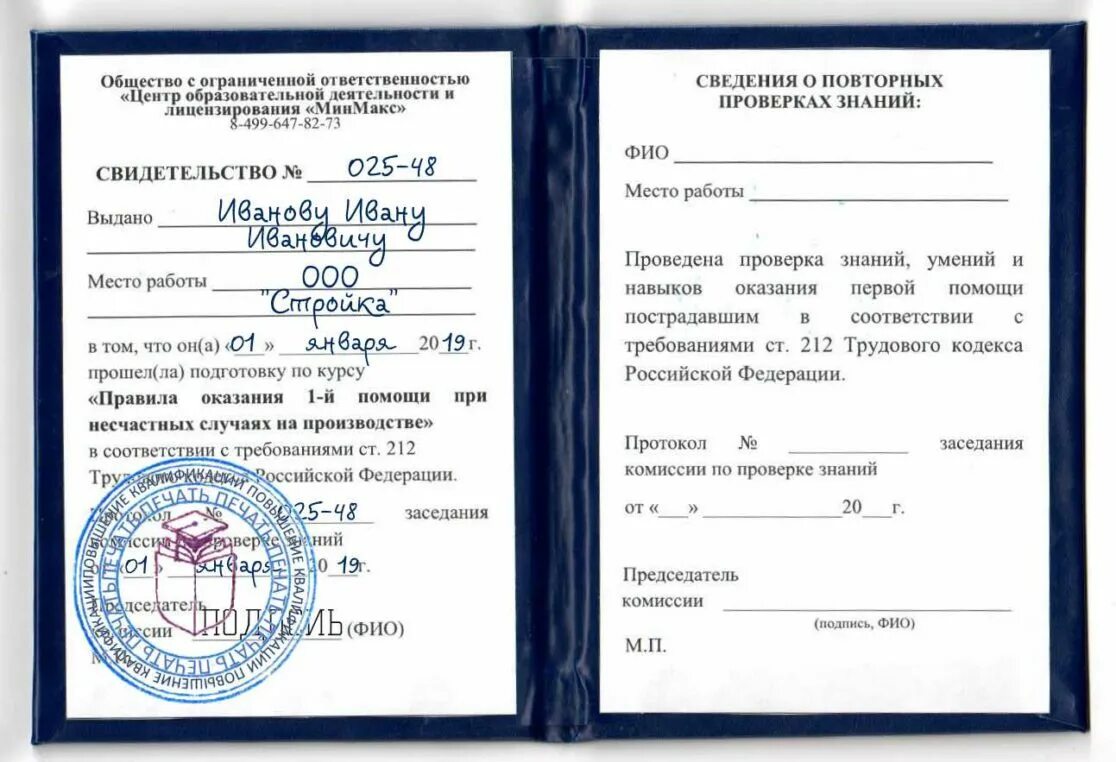 Общество с ограниченной ответственностью
«Центр образовательной деятельности и
лицензирования «МинМакс»
8-499-647-82-73
СВИДЕТЕЛЬСТВО № 025-48
Выдано Иванову Ивану
Ивановичу
Место работы ООО
"Стройка"
в том, что он(а) «01» января 2019г.
прошел(ла) подготовку по курсу
«Правила оказания 1-й помощи при
несчастных случаях на производстве»
в соответствии с требованиями ст. 212
Российской Федерации.
№ 025-48 заседания
«01» января 2019г.
Председатель
(ФИО)
ПОВЫШЕНИЕ КВАЛИФИКАЦИИ ПОВЫШЕНИЕ КВАЛИФИКАЦИИ ПОВЫШЕНИЕ КВАЛИФИКАЦИИ
ПЕЧАТЬ ПЕЧАТЬ ПЕЧАТЬ ПЕЧАТЬ ПЕЧАТЬ
СВЕДЕНИЯ О ПОВТОРНЫХ
ПРОВЕРКАХ ЗНАНИЙ:
ФИО
Место работы
Проведена проверка знаний, умений и
навыков оказания первой помощи
пострадавшим в соответствии с
требованиями ст. 212 Трудового кодекса
Российской Федерации.
Протокол № заседания
комиссии по проверке знаний
от «___» 20___г.
Председатель
комиссии
(подпись, ФИО)
М.П.